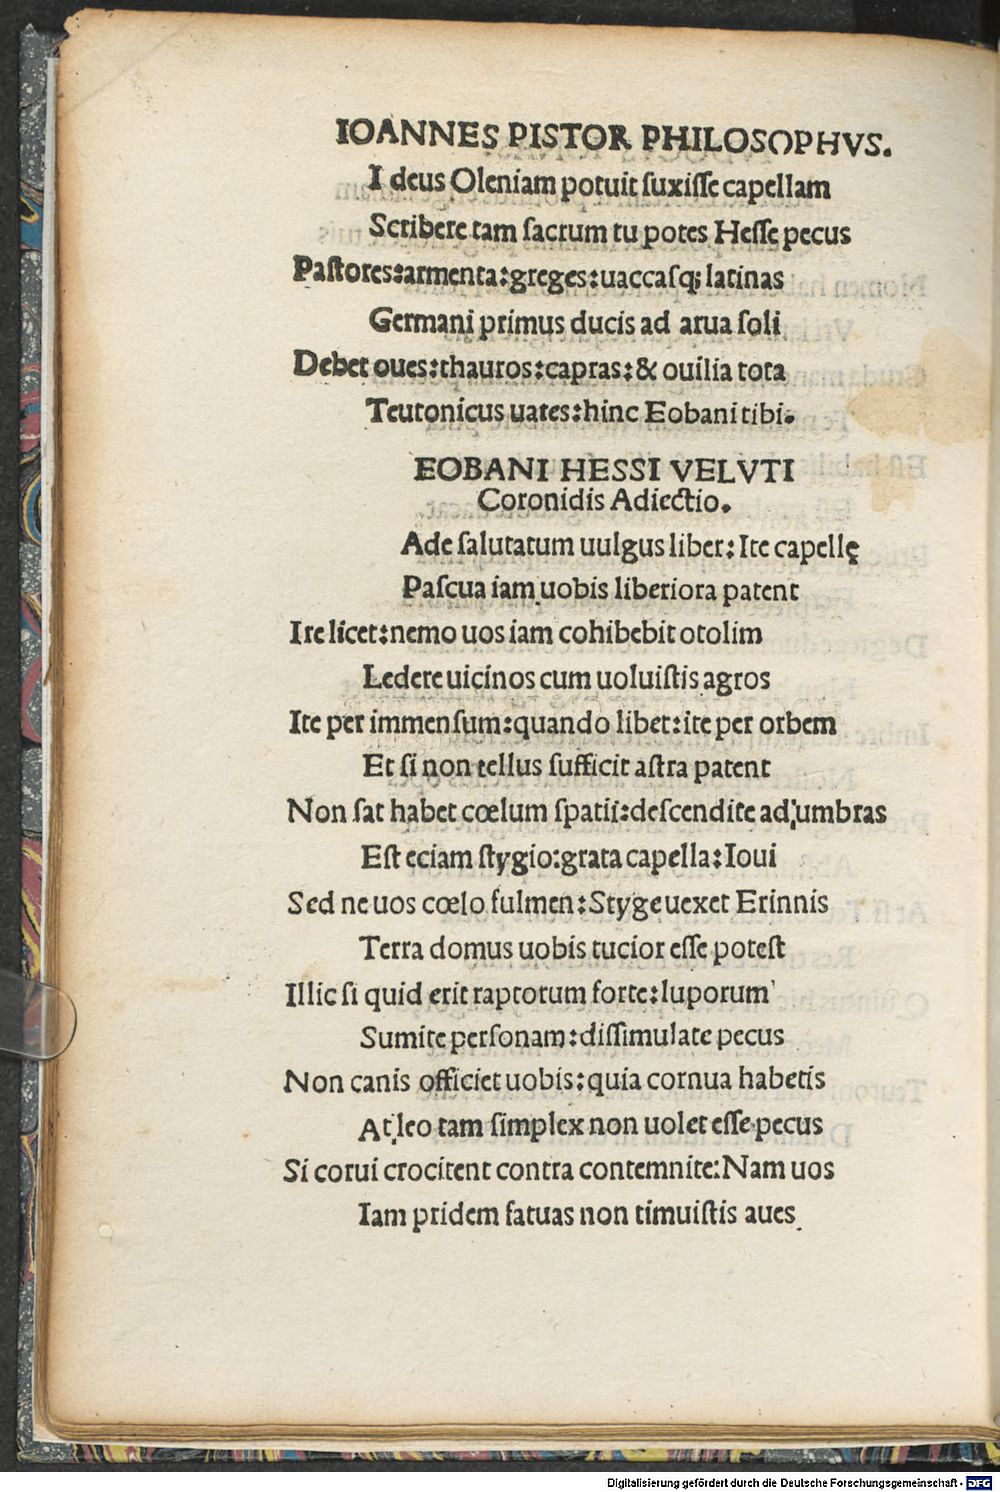 IOANNES PISTOR PHILOSOPHVS.
I deus Oleniam potuit ſuxiſſe capellam
Scribere tam ſacrum tu potes Heſſe pecus
Paſtores:armenta:greges:uaccaſq; latinas
Germani primus ducis ad arua ſoli
Debet oues:thauros:capras:& ouilia tota
Teutonicus uates:hinc Eobani tibi.
EOBANI HESSI VELVTI
Coronidis Adiectio.
Ade ſalutatum uulgus liber: Ite capellę
Paſcua iam uobis liberiora patent
Ire licet:nemo uos iam cohibebit otolim
Ledere uicinos cum uoluiſtis agros
Ite per immenſum:quando libet:ite per orbem
Et ſi non tellus ſufficit aſtra patent
Non ſat habet cœlum ſpatii:deſcendite ad umbras
Eſt eciam ſtygio:grata capella:Ioui
Sed ne uos cœlo fulmen:Styge uexet Erinnis
Terra domus uobis tucior eſſe poteſt
Illic ſi quid erit raptorum forte:luporum
Sumite perſonam:diſſimulate pecus
Non canis officiet uobis:quia cornua habetis
At leo tam ſimplex non uolet eſſe pecus
Si corui crocitent contra contemnite:Nam uos
Iam pridem fatuas non timuiſtis aues
Digitalisierung gefördert durch die Deutsche Forschungsgemeinschaft - DFG